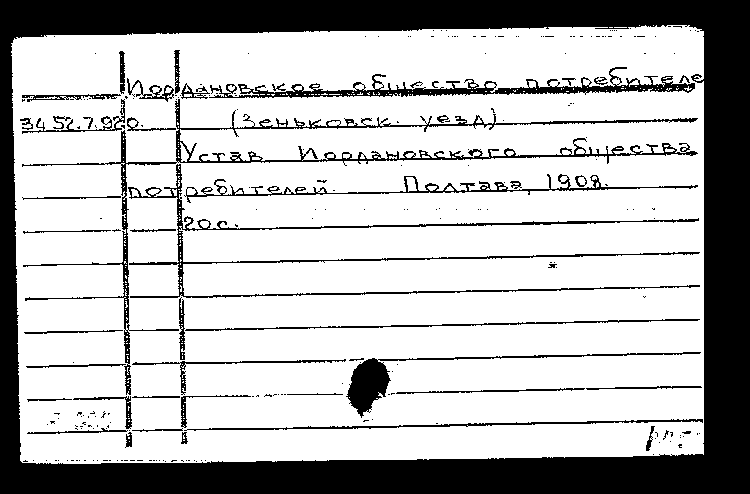 Иордановское общество потребителе
34 52.7.920. (Зеньковск. уезд)
Устав Иордановского общества
потребителей. Полтава, 1908.
20 с.